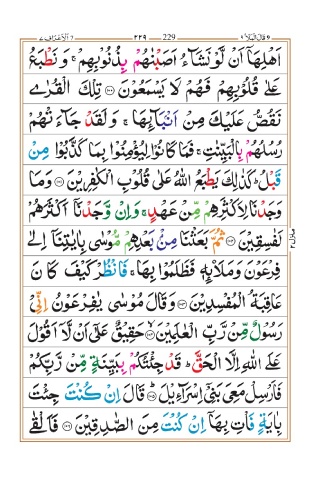 الاعراف ٧ ٢٢٩ 229 قال الملا ٩
اَهْلِهَاۤ اَنْ لَّوْ نَشَآءُ اَصَبْنٰهُمْ بِذُنُوْبِهِمْ ۚ وَ نَطْبَعُ
عَلٰى قُلُوْبِهِمْ فَهُمْ لَا يَسْمَعُوْنَ ۝١٠٠ تِلْكَ الْقُرٰى
نَقُصُّ عَلَيْكَ مِنْ اَنْۢبَآئِهَا ۚ وَ لَقَدْ جَآءَتْهُمْ
رُسُلُهُمْ بِالْبَيِّنٰتِ ۚ فَمَا كَانُوْا لِيُؤْمِنُوْا بِمَا كَذَّبُوْا مِنْ
قَبْلُ ؕ كَذٰلِكَ يَطْبَعُ اللّٰهُ عَلٰى قُلُوْبِ الْكٰفِرِيْنَ ۝١٠١ وَمَا
وَجَدْنَا لِاَكْثَرِهِمْ مِّنْ عَهْدٍ ۚ وَاِنْ وَّجَدْنَاۤ اَكْثَرَهُمْ
لَفٰسِقِيْنَ ۝١٠٢ ثُمَّ بَعَثْنَا مِنْۢ بَعْدِهِمْ مُّوْسٰى بِاٰيٰتِنَاۤ اِلٰى
فِرْعَوْنَ وَمَلَا۟ئِهٖ فَظَلَمُوْا بِهَا ۚ فَانْظُرْ كَيْفَ كَانَ
عَاقِبَةُ الْمُفْسِدِيْنَ ۝١٠٣ وَقَالَ مُوْسٰى يٰفِرْعَوْنُ اِنِّيْ
رَسُوْلٌ مِّنْ رَّبِّ الْعٰلَمِيْنَ ۝١٠٤ حَقِيْقٌ عَلٰۤى اَنْ لَّاۤ اَقُوْلَ
عَلَى اللّٰهِ اِلَّا الْحَقَّ ؕ قَدْ جِئْتُكُمْ بِبَيِّنَةٍ مِّنْ رَّبِّكُمْ
فَاَرْسِلْ مَعِيَ بَنِيْۤ اِسْرَآءِيْلَ ۝١٠٥ قَالَ اِنْ كُنْتَ جِئْتَ
بِاٰيَةٍ فَاْتِ بِهَاۤ اِنْ كُنْتَ مِنَ الصّٰدِقِيْنَ ۝١٠٦ فَاَلْقٰى